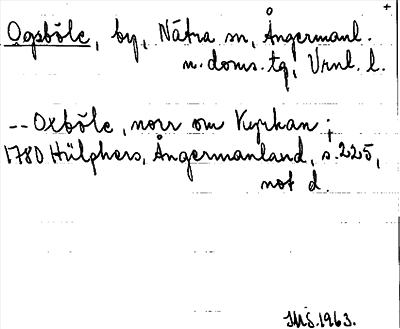 +
Ogsböle, by, Nätra sn, Ångermanl.
n. doms. tg, Vrnl. l.
-- Oxböle, norr om Kyrkan;
1780 Hülphers, Ångermanland, s. 225,
not d.
1963.